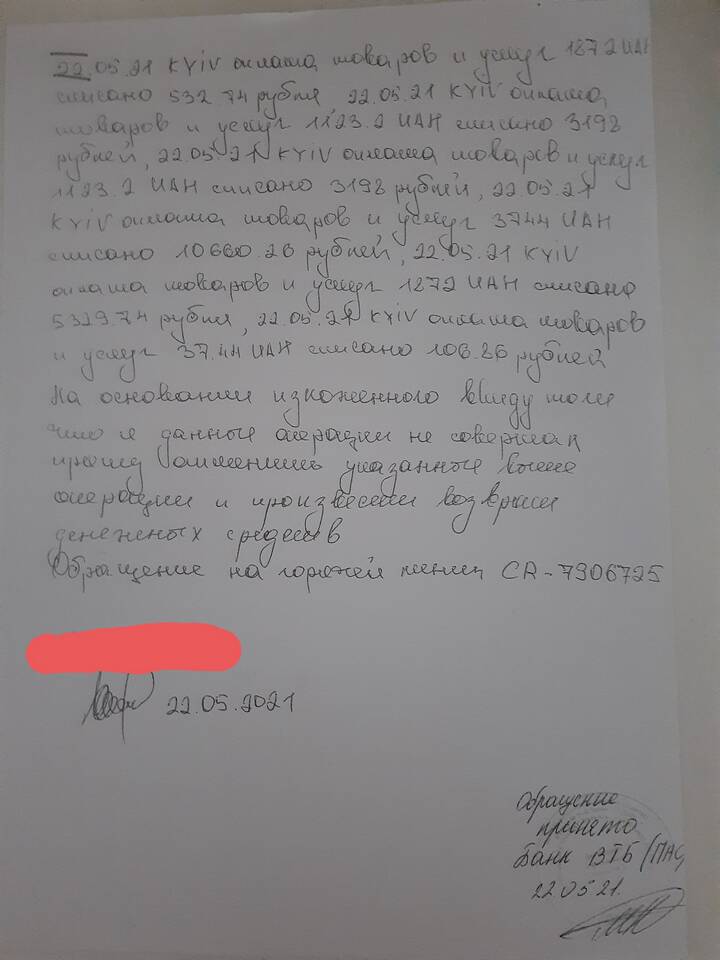 22.05.21 KYIV оплата товаров и услуг 1872 UAH
списано 532 74 рубля, 22.05.21 KYIV оплата
товаров и услуг 1123.2 UAH списано 3198
рублей, 22.05.21 KYIV оплата товаров и услуг
1123.2 UAH списано 3198 рублей, 22.05.21
KYIV оплата товаров и услуг 3744 UAH
списано 10660.26 рублей, 22.05.21 KYIV
оплата товаров и услуг 1872 UAH списано
5329.74 рубля, 22.05.21 KYIV оплата товаров
и услуг 37.44 UAH списано 106.86 рублей
На основании изложенного ввиду того
что я данные операции не совершал
прошу отменить указанные выше
операции и произвести возврат
денежных средств
Обращение на горячей линии CR-7906725
22.05.2021
Обращение
принято
Банк ВТБ (ПАО)
22.05.21.